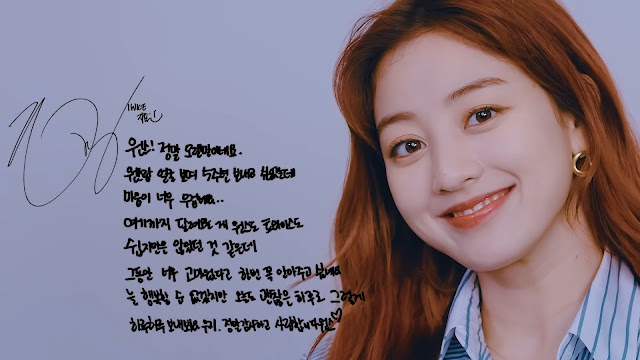 TWICE
지효
원스! 정말 오랜만이네요.
원스랑 얼굴 보며 5주년 보내고 싶었는데
마음이 너무 무겁네요..
여기까지 달려오는 게 원스도 트와이스도
쉽지만은 않았던 것 같은데
그동안 너무 고마웠다고 하면 꼭 안아주고
늘 행복할 수 없겠지만 오늘도 괜찮은 하루로 그렇게
하루하루 보내봐요 우리. 정말 감사하고 사랑합니다 원스♡